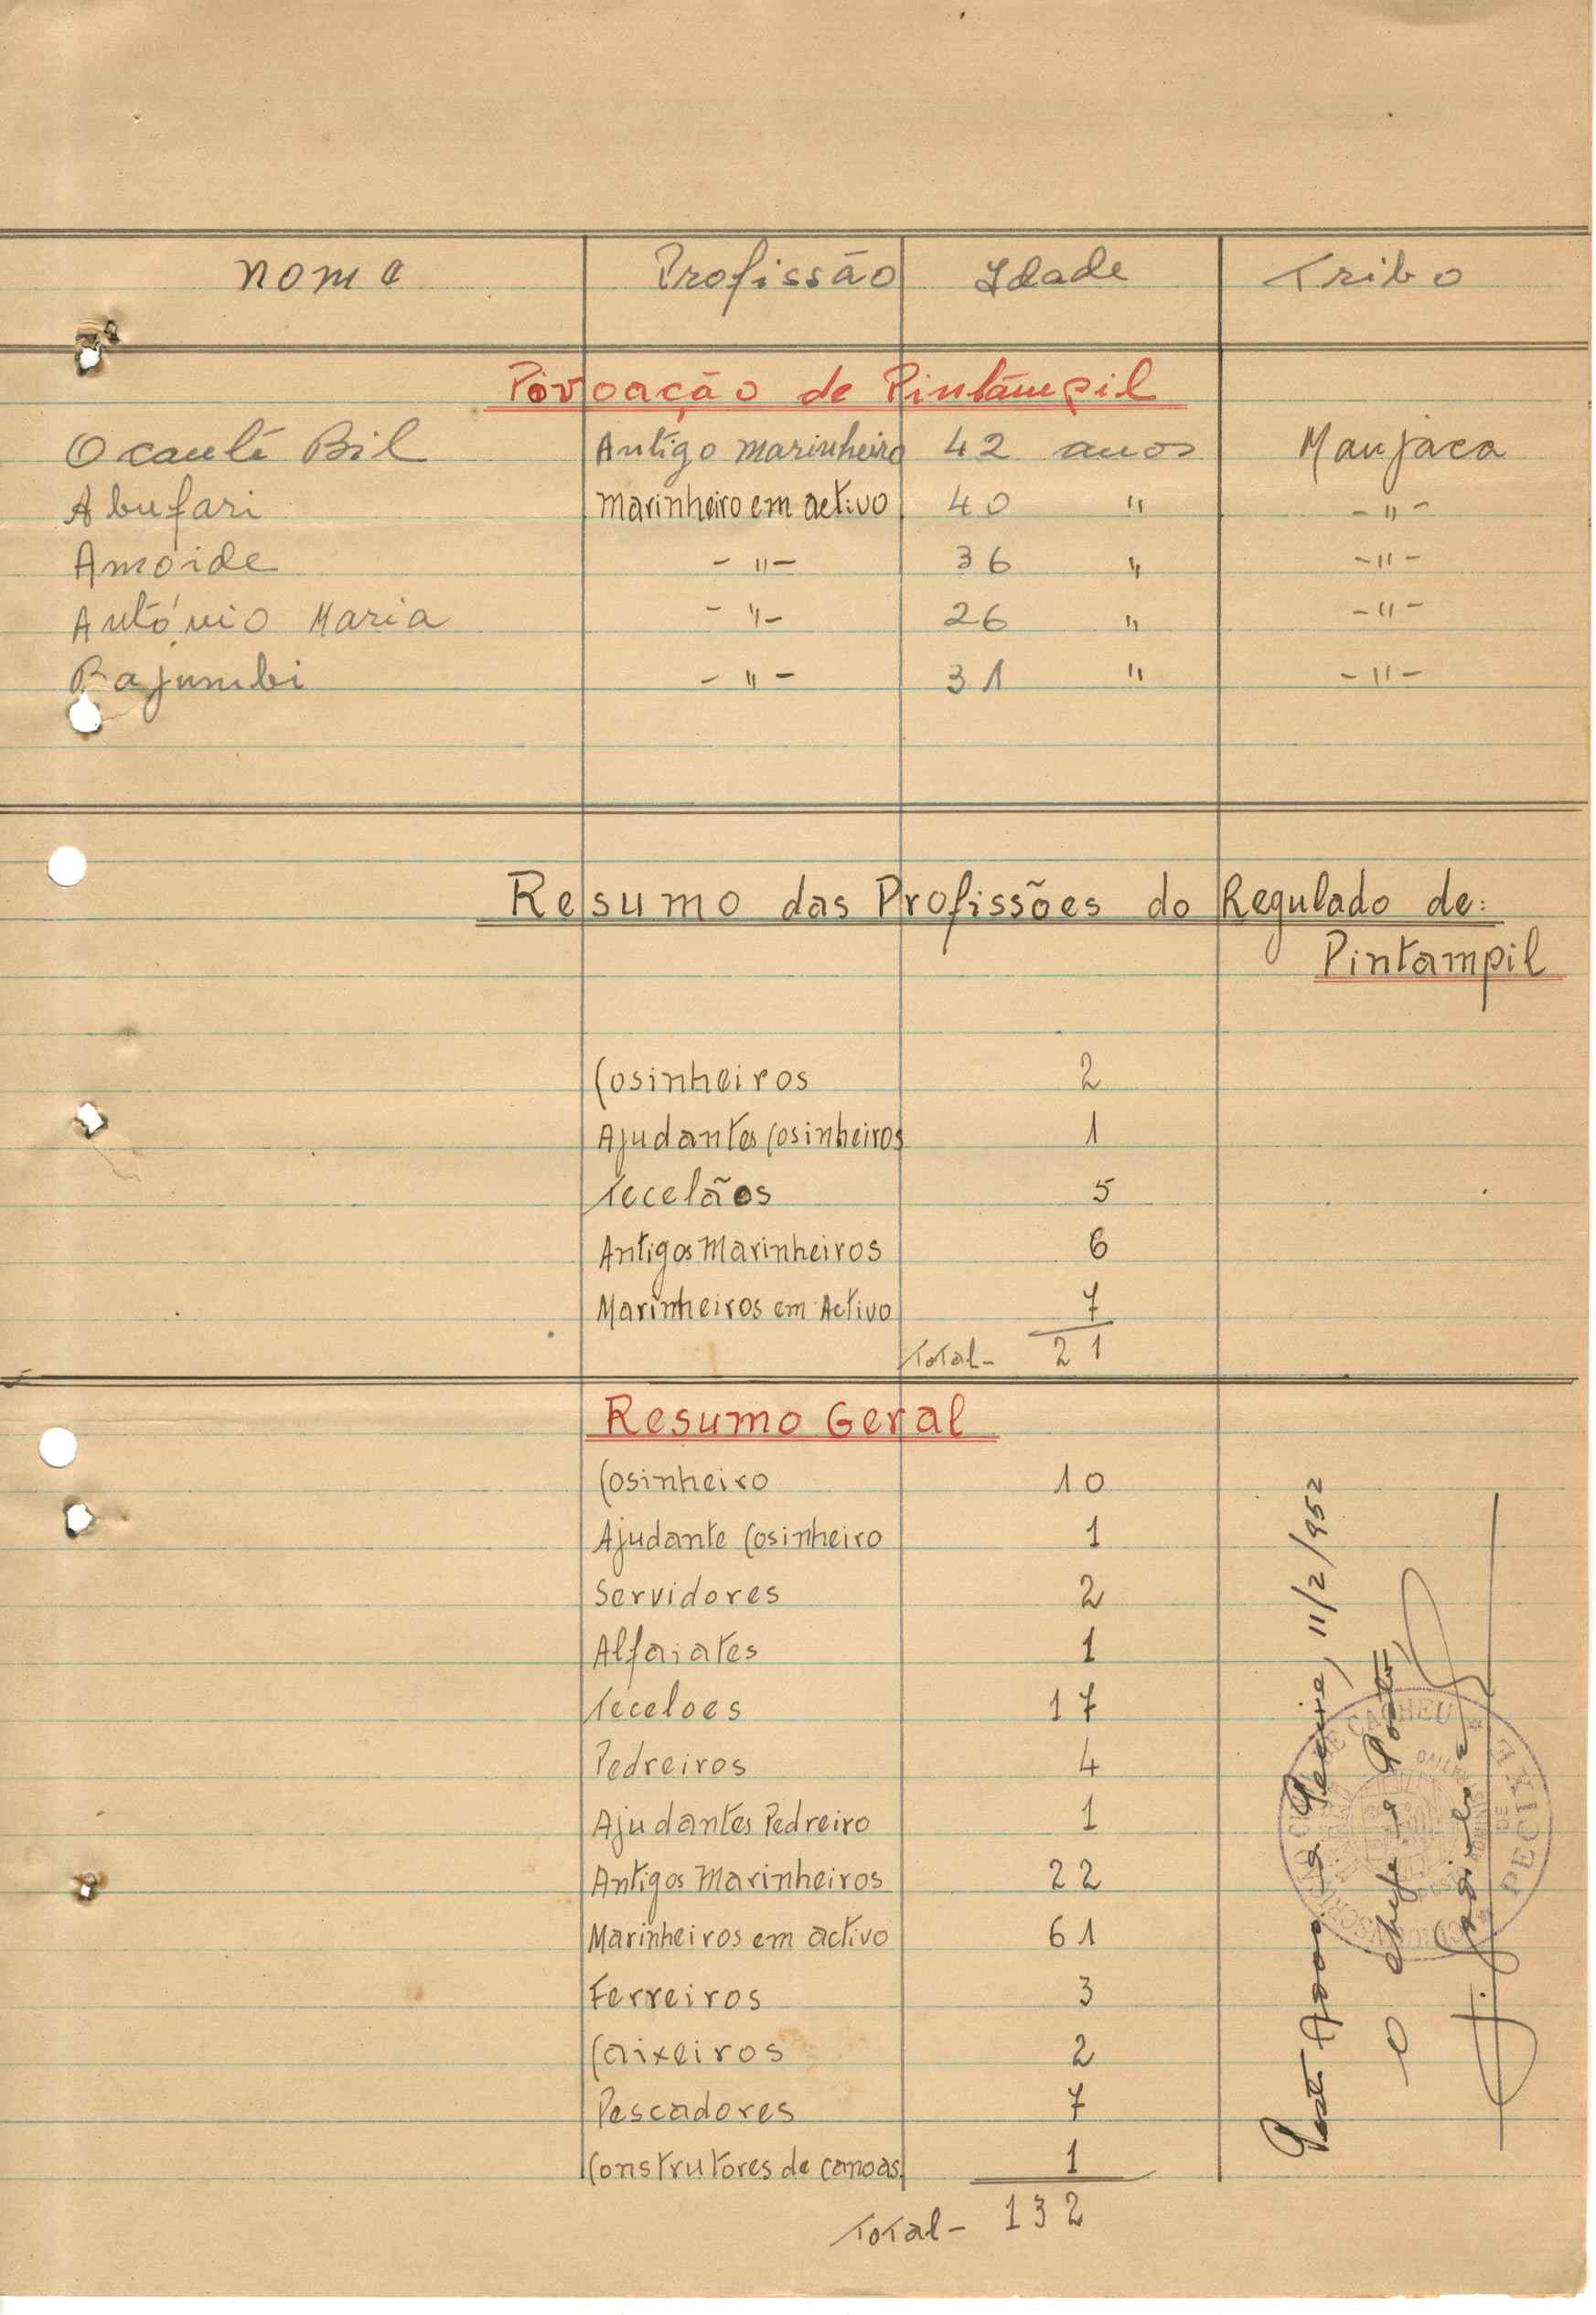 Nome Profissão Idade Tribo
Povoação de Pintâmpil
Ocanté Bil Antigo marinheiro 42 anos Manjaca
Abufari Marinheiro em activo 40 " - " -
Amoide - " - 36 " - " -
António Maria - " - 26 " - " -
Bajumbi - " - 31 " - " -
Resumo das Profissões do Regulado de:
Pintampil
Cosinheiros 2
Ajudantes Cosinheiros 1
Tecelãos 5
Antigos Marinheiros 6
Marinheiros em Activo 7
Total - 21
Resumo Geral
Cosinheiro 10
Ajudante Cosinheiro 1
Servidores 2
Alfaiates 1
Teceloes 17
Pedreiros 4
Ajudantes Pedreiro 1
Antigos Marinheiros 22
Marinheiros em activo 61
Ferreiros 3
Caixeiros 2
Pescadores 7
Construtores de canoas 1
Total - 132
11/2/952
O chefe de Posto,
DE CACHEU * PECIXE *